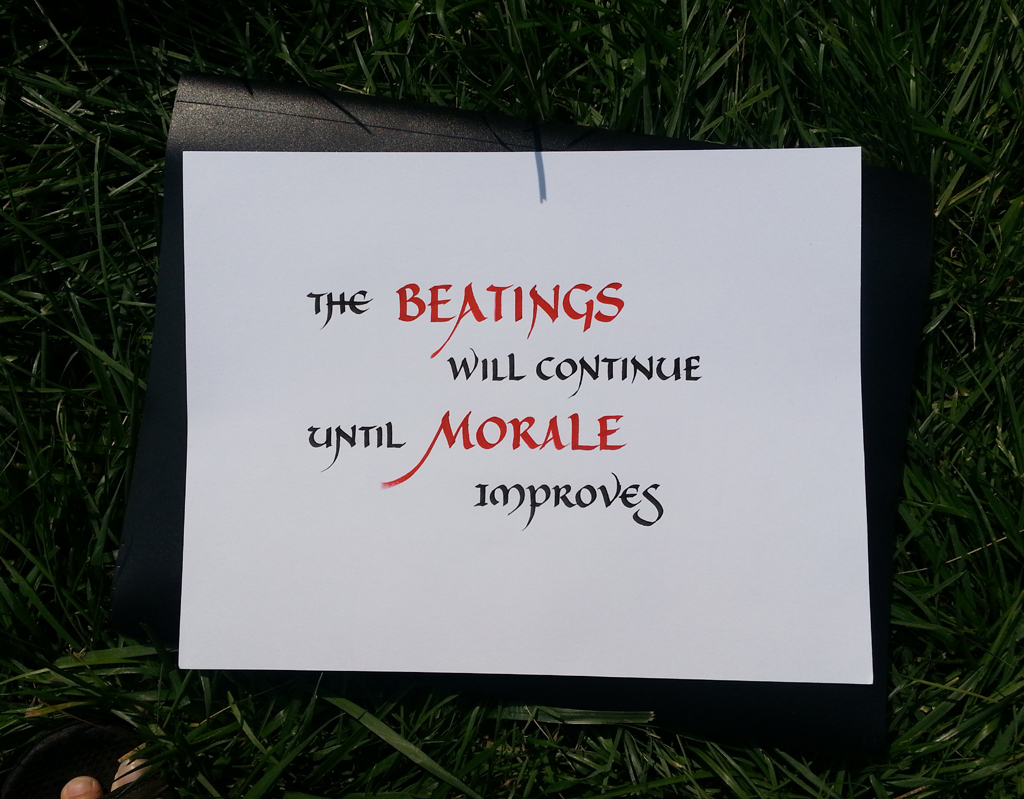 THE BEATINGS
WILL CONTINUE
UNTIL MORALE
IMPROVES